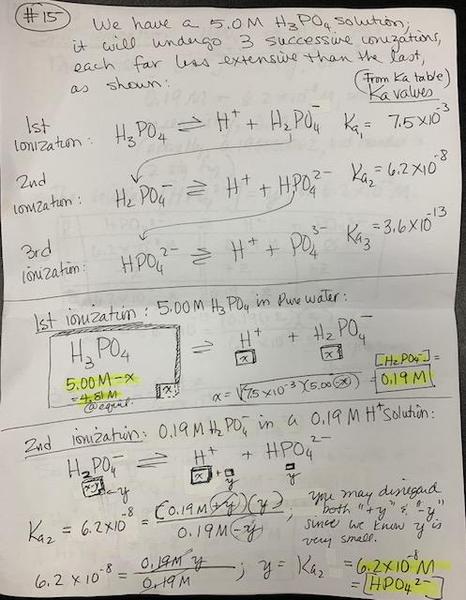 #15 We have a 5.0 M H₃PO₄ solution;
it will undergo 3 successive ionizations,
each far less extensive than the last,
as shown:
(From Ka table)
Ka values
1st ionization: H₃PO₄ ⇌ H⁺ + H₂PO₄⁻ Ka₁ = 7.5×10⁻³
2nd ionization: H₂PO₄⁻ ⇌ H⁺ + HPO₄²⁻ Ka₂ = 6.2×10⁻⁸
3rd ionization: HPO₄²⁻ ⇌ H⁺ + PO₄³⁻ Ka₃ = 3.6×10⁻¹³
1st ionization: 5.00M H₃PO₄ in pure water:
H₃PO₄ ⇌ H⁺ + H₂PO₄⁻
x x
5.00M-x
=4.81M
@equil.
x
x = √(7.5×10⁻³)(5.00-x) = [H₂PO₄⁻] = 0.19 M
2nd ionization: 0.19M H₂PO₄⁻ in a 0.19M H⁺ solution:
H₂PO₄⁻ ⇌ H⁺ + HPO₄²⁻
x-y y x+y y
Ka₂ = 6.2×10⁻⁸ = (0.19M+y)(y) / 0.19M-y ;
you may disregard
both "+y" & "-y"
since we know y is
very small.
6.2×10⁻⁸ = 0.19M y / 0.19M ; y = Ka₂ = 6.2×10⁻⁸ M
= [HPO₄²⁻]